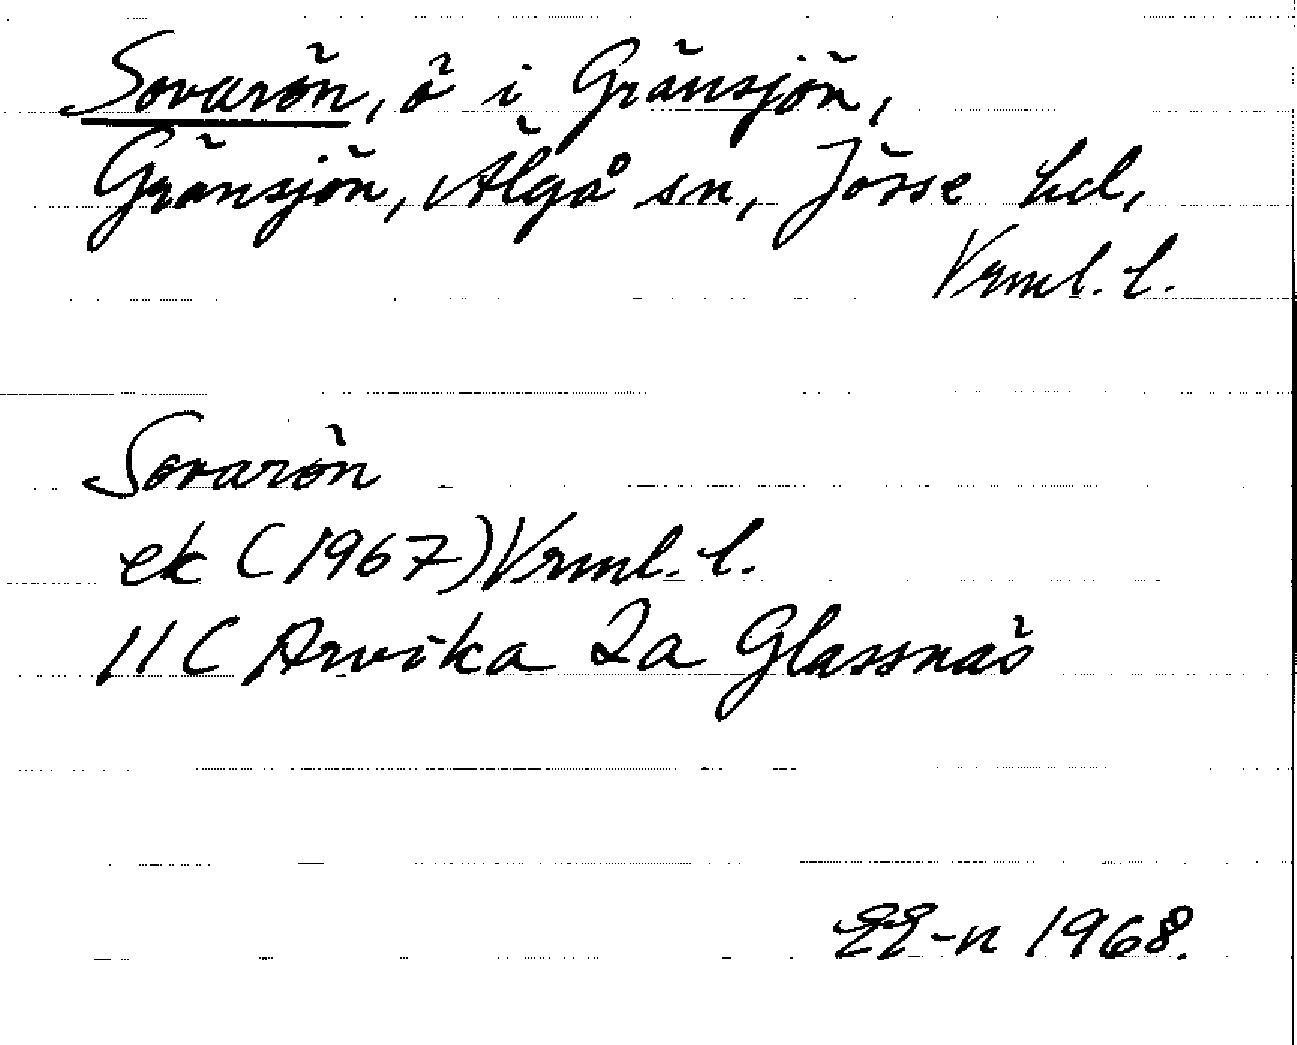 Sovarön, ö i Gränsjön,
Gränsjön, Älgå sn, Jösse hd,
Vrml. l.
Sovarön
ek (1967) Vrml. l.
11C Arvika 2a Glassnäs
EE-n 1968.